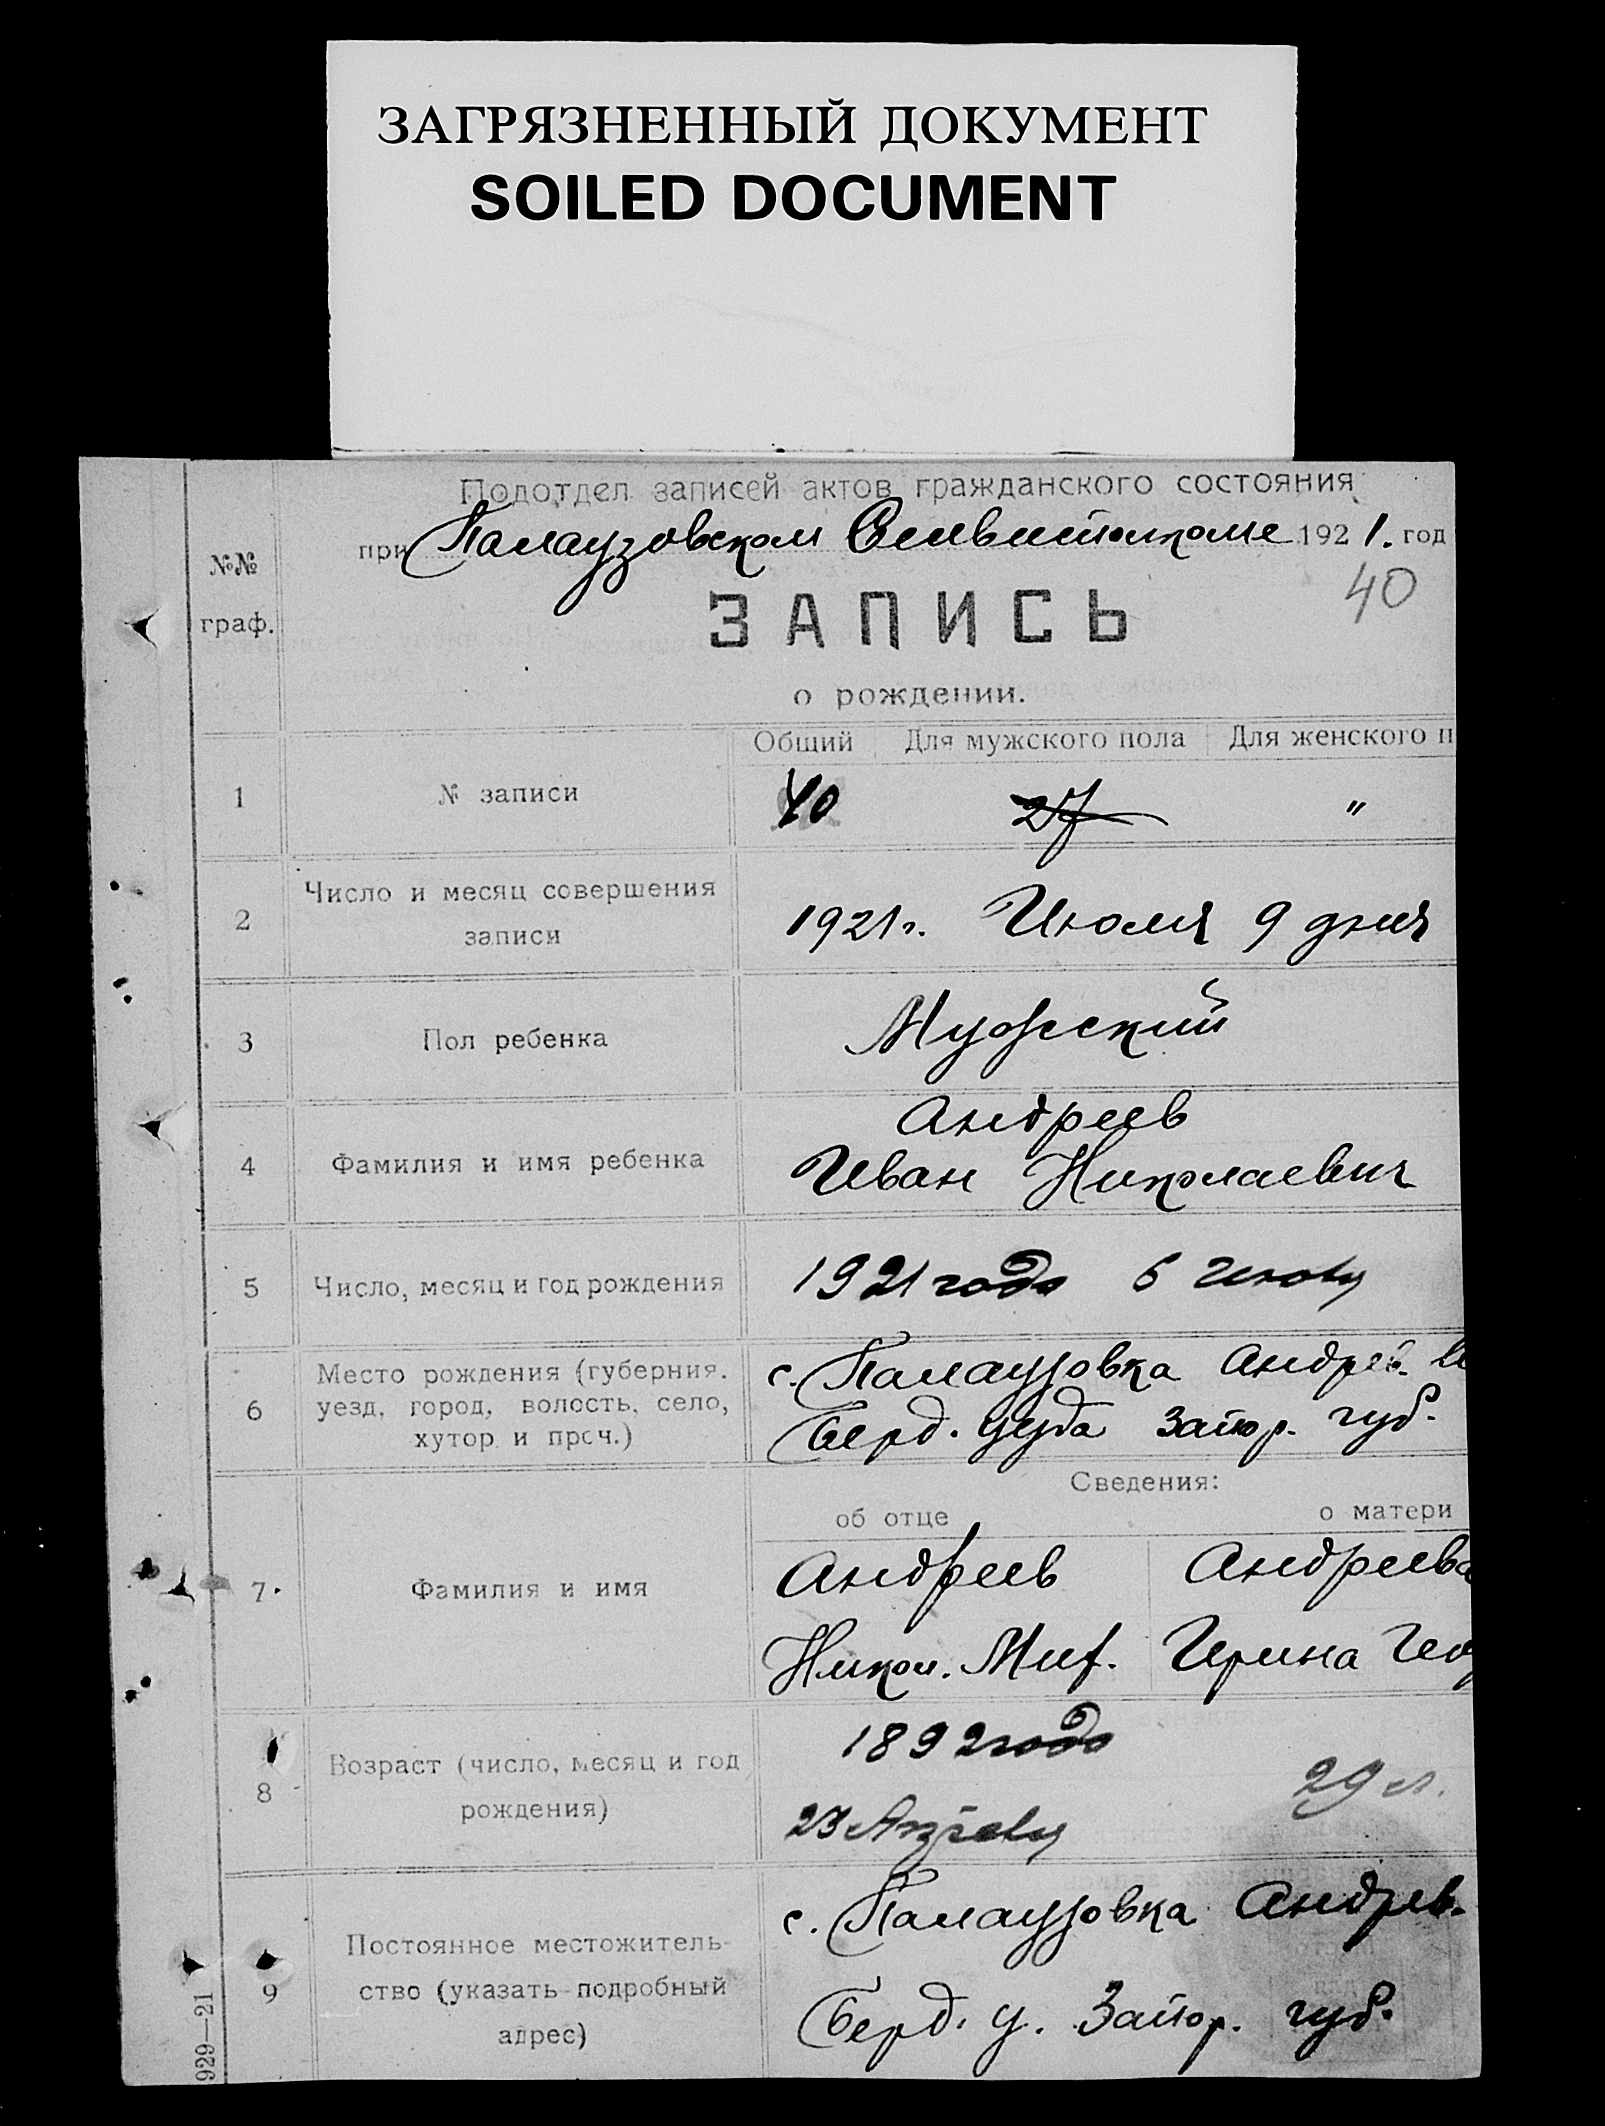 ЗАГРЯЗНЕННЫЙ ДОКУМЕНТ
SOILED DOCUMENT
Подотдел записей актов гражданского состояния
при Палаузовском 1921. год
40
№№ граф.
ЗАПИСЬ
о рождении.
Общий Для мужского пола Для женского п
1 № записи 40 27 "
2 Число и месяц совершения
записи
1921 г. Июля 9 дня
3 Пол ребенка Мужский
Андреев
4 Фамилия и имя ребенка Иван Николаевич
5 Число, месяц и год рождения 1921 года 6
6 Место рождения (губерния,
уезд, город, волость, село,
хутор и проч.)
с. Палаузовка Андрев.
Берд. уезда Запор. губ.
Сведения:
об отце о матери
7. Фамилия и имя
Андреев Андреева
Никол. Миф. Ирина
8 Возраст (число, месяц и год
рождения)
1892 года
29 л.
23
9 Постоянное местожитель-
ство (указать подробный
адрес)
с. Палаузовка Андрев.
Берд. у. Запор. губ.
929—21